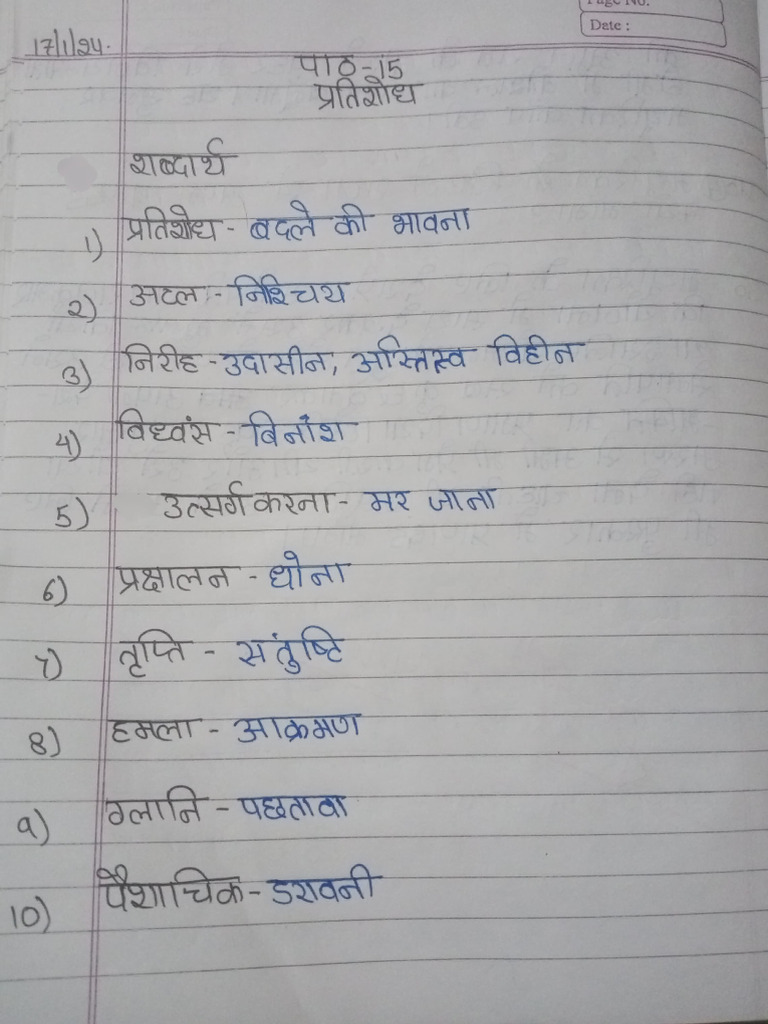 Page No.
Date :
17/1/24.
पाठ-15
प्रतिशोध
शब्दार्थ
1) प्रतिशोध - बदले की भावना
2) अटल - निश्चिय
3) निरीह - उदासीन, अस्तित्व विहीन
4) विध्वंस - विनाश
5) उत्सर्ग करना - मर जाना
6) प्रक्षालन - धोना
7) तृप्ति - संतुष्टि
8) हमला - आक्रमण
9) ग्लानि - पछतावा
10) पैशाचिक - डरावनी